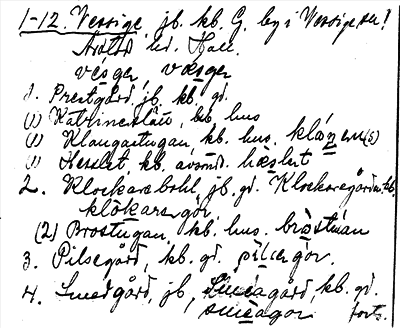 1-12. Vessige, jb. kb. G. by i Vessige sn!
Årstad hd. Hall.
vésger, væsger
1. Prestgård jb. kb. gd.
(1) Katrineslätt, kb. hus
(1) Klangastugan, kb. hus.
(1) Hesslet, kb. avsönd. hæslet
2. Klockarebohl, jb. gd. Klockaregården kb.
klåkaregór
(2) Brostugan, kb. hus. bròstúan
3. Pilsegård, kb. gd. pilsegór.
4. Smedgård, jb, Smeagård, kb. gd.
smeagór forts.